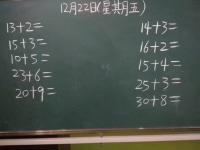 12月22日(星期五)
13+2=
15+3=
10+5=
23+6=
20+9=
14+3=
16+2=
15+4=
25+3=
30+8=